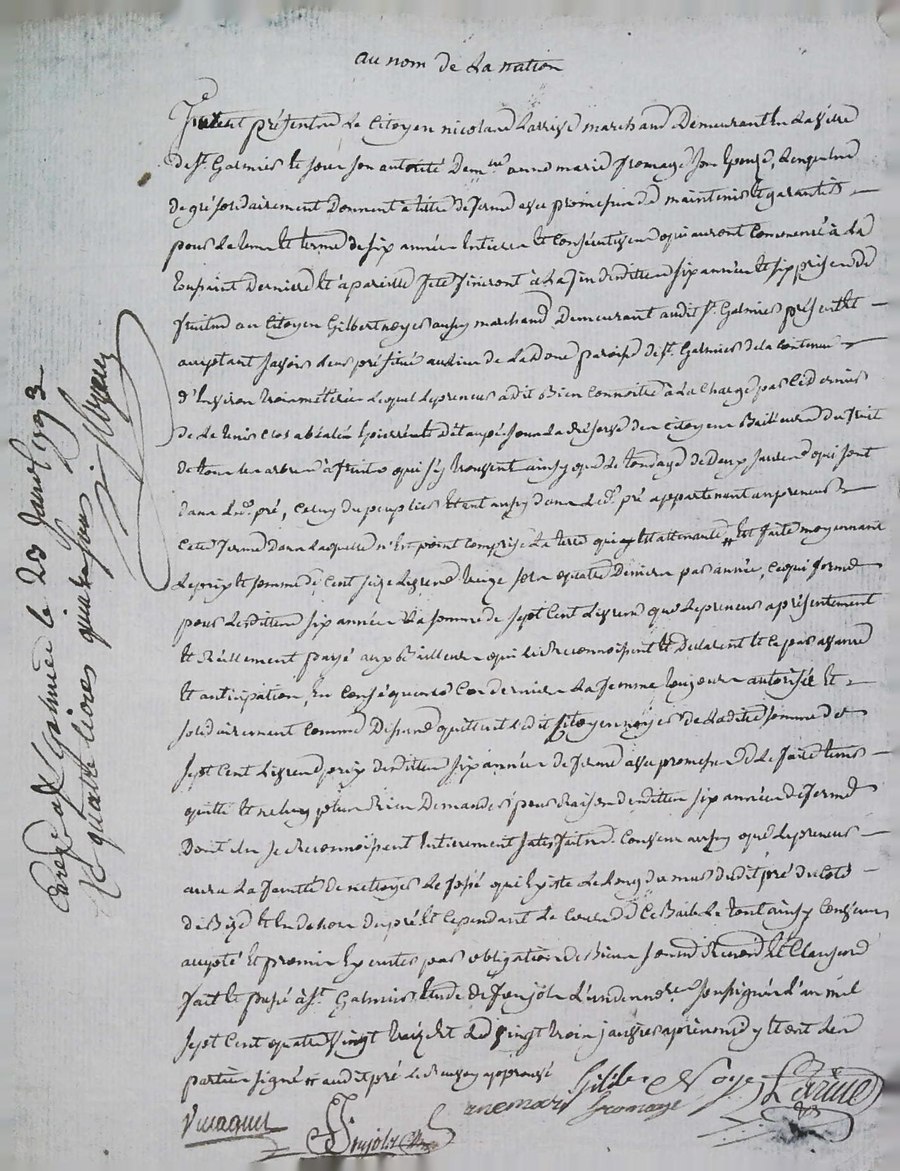 au nom de la nation
furent présentés le Citoyen nicolas Larrive marchand Demeurant En la Ville
de St. Galmier et sous son autorité Dem.lle anne marie fromage son Epouse, Lesquels
de gré solidairement Donnent à titre de ferme avec promesses de maintenir et garantir
pour le tems et terme de six années Entieres et Consécutives qui auront Commencé à la
toussaint Derniere et à pareille fete finiront à la fin desdittes six années et six prises de
fruits au Citoyen Gilbert noyer aussy marchand Demeurant audit St. Galmier présent et
acceptant scavoir un pré situé au lieu de la Doue paroisse de St. Galmier de la Contenue
d'Environ trois métérées Lequel le preneur a dit Bien Connoitre à la Charge par Ce dernier
de le tenir clos sous la Réserve des Citoyens Bailleurs du fruit
de tous les arbres à fruits qui s'y trouvent ainsy que le tondage de Deux qui sont
dans led. pré, Celuy du peuplier Etant aussy dans led. pré appartenant au preneur
Cette ferme Dans Laquelle n'Est point Comprise La terre qui y Est attenante, Est faite moyennant
Le prix et somme de Cent seize Livres treize sols quatre Deniers par année, Ce qui forme
pour lesdittes six années La somme de sept Cent Livres que Le preneur a présentement
et Réellement payé aux Bailleurs qui le Reconnoissent et Declarent et Ce par avance
et anticipation, En Conséquence Ces derniers La femme toujours autorisée et
solidairement Comme Dessus quittent ledit Citoyen noyer de laditte somme de
sept Cent Livres prix desdittes six années de ferme avec promesses de Le faire tenir
quitte et ne luy plus Rien Demander pour Raison desdittes six années de ferme
Dont ils se Reconnoissent Entierement satisfaits. Convenu aussy que le preneur
aura La faculté de nettoyer Le fossé qui Existe Le long du mur dudit pré du Coté
de Bize et En dehors du pré et Cependant Le Cours de Ce Bail Le tout ainsy Convenu
accepté et promis Executer par obligation de Biens soumis Renoncé et Clausé
fait et passé à St. Galmier Etude de Ponjol L'un des nores soussignés L'an mil
sept Cent quatre Vingt treize et le Vingt trois janvier après midy et ont les
parties signé audit pré Le Renvoy approuvé
Gilber Noyer Larive
anemari fromage
Controlé a St Galmier le 23 Janvier 1793
Rx quatre livres quinze sous